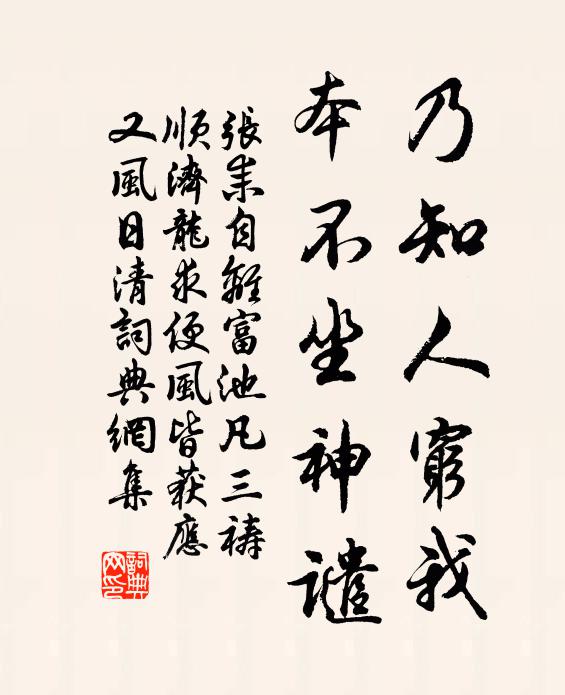 乃知人窮我
本不坐神譴
張耒自離富池凡三禱
順濟龍求便風皆获應
又風日清詞典網集
詞典
网印